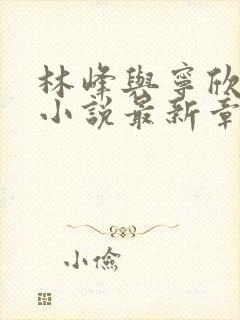 林峰與寧欣
小說最新章
小儉